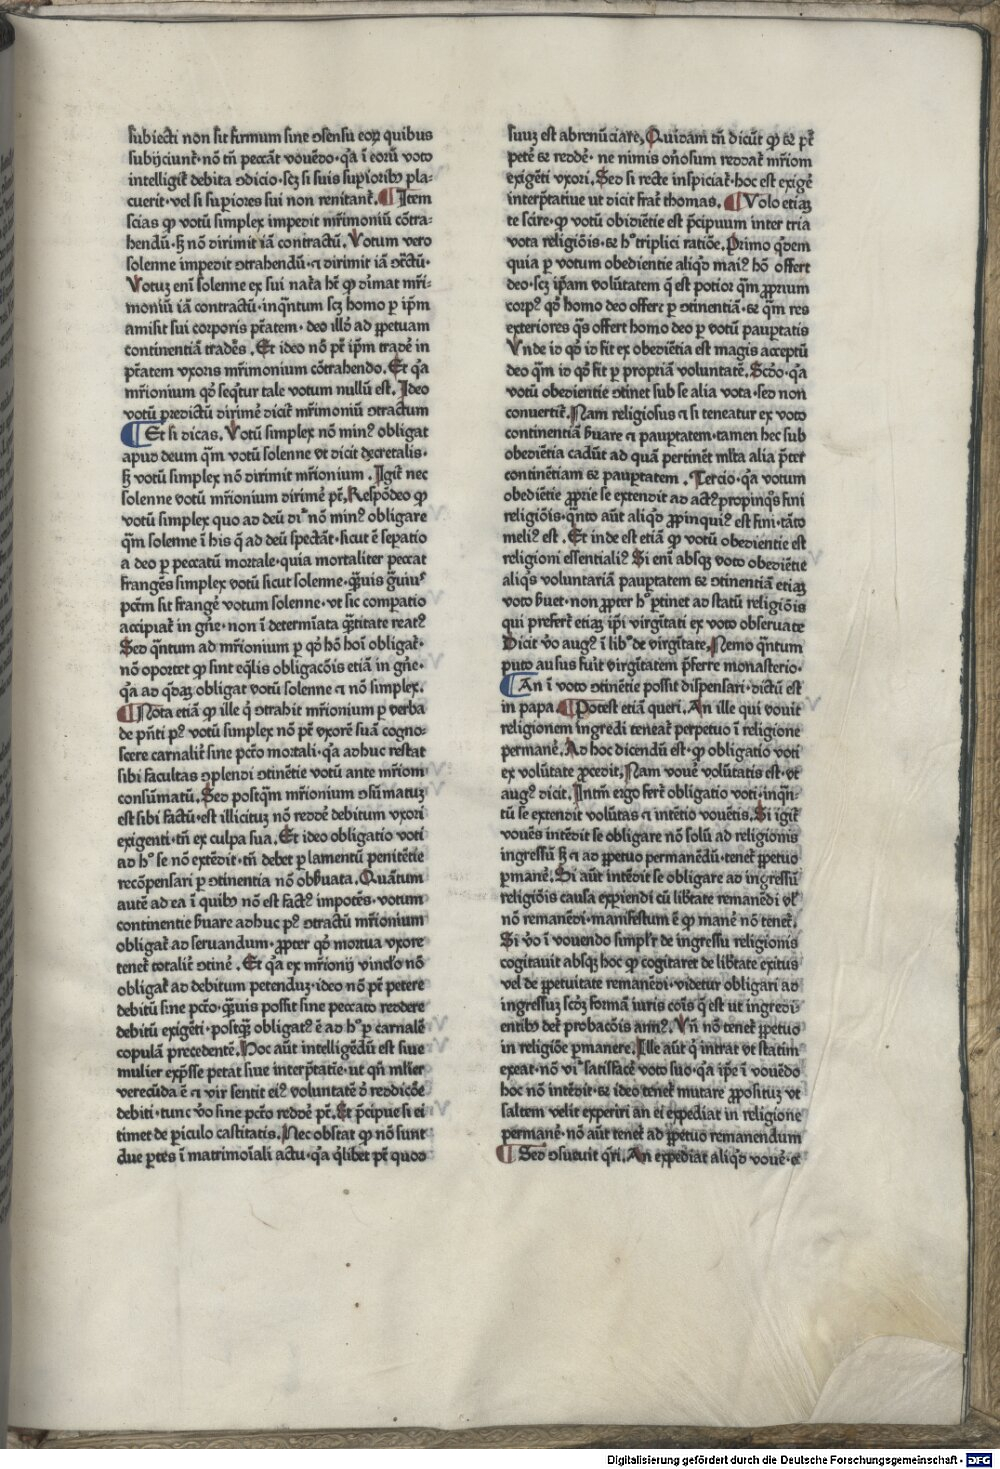 subiecti non sit firmum sine ↄsensu eoꝝ quibus
subijciunt᷑· nō tñ peccāt vouēdo· qꝛa ī eorū voto
intelligit᷑ debita ↄdicio· scꝫ si suis superioribꝰ pla⸗
cuerit· vel si superiores sui non renitant᷑. ¶ Item
scias ꝙ votū simplex impedit mr̄imoniū cōtra⸗
hendū· sꝫ nō dirimit iā contractū. Votum vero
solenne impedit ↄtrahendū· ⁊ dirimit iā ↄtctū·
Votuꝫ eni solenne ex sui nat᷑a hꝫ ꝙ dimat mr̄i⸗
moniū iā contractū· inqͣntum scꝫ homo ꝑ ip̄m
amisit sui corporis ptātem· deo illō ad ꝑpetuam
continentiā tradēs. Et ideo nō pt̄ ip̄m tradē in
ptātem vxoris mr̄imonium cōtrahendo. Et qꝛa
mr̄ionium qō seqͣtur tale votum nullū est. Ideo
votū predictū dirimē dicit᷑ mr̄imoniū ↄtractum
¶ Et si dicas. Votū simplex nō minꝰ obligat
apud deum qͣm votū solenne vt dicit decretalis·
sꝫ votū simplex nō dirimit mr̄ionium. Igit᷑ nec
solenne votū mr̄ionium dirimē pt̄. Respōdeo ꝙ
votū simplex quo ad deū dr̄ nō minꝰ obligare
qͣm solenne ī his q̄ ad deū spectāt· sicut ē seꝑatio
a deo ꝑ peccatū mortale· quia mortaliter peccat
frangēs simplex votū sicut solenne· qͣuis gͣuiꝰ
pctm̄ sit frangē votum solenne· vt sic comꝑatio
accipiat᷑ in gn̄e· non ī determīata qͣntitate reatꝰ
Sed qͣntum ad mr̄ionium ꝑ qō hō hoī obligat᷑·
nō oportet ꝙ sint eqͣlis obligacōis etiā in gn̄e·
qꝛa ad qͦdaꝫ obligat votū solenne ⁊ nō simplex.
¶ Nota etiā ꝙ ille q̇ ↄtrahit mr̄ionium ꝑ verba
de pn̄ti pꝰ votū simplex nō pt̄ vxorē suā cogno⸗
scere carnalit᷑ sine pctō mortali· qꝛa adhuc restat
sibi facultas ↄplendi ↄtinētie votū ante mr̄iom
consūmatū. Sed postqͣm mr̄ionium ↄsūmatuꝫ
est sibi factū· est illicituꝫ nō reddē debitum vxori
exigenti· tñ ex culpa sua. Et ideo obligatio voti
ad hͦ se nō extēdit· tñ debet ꝑ lamentū penitētie
recōpensari ꝑ ↄtinentia nō obẜuata. Quātum
autē ad ea ī quibꝰ nō est factꝰ impotēs· votum
continentie ẜuare adhuc pꝰ ↄtractū mr̄ionium
obligat᷑ ad seruandum· ꝓpter qō mortua vxore
tenet᷑ totalit᷑ ↄtinē. Et qꝛa ex mr̄ionij vinclo nō
obligat᷑ ad debitum petenduꝫ· ideo nō pt̄ petere
debitū sine pctō· qͣuis possit sine peccato reddere
debitū exigēti· postqͣ obligatꝰ ē ad hͦ ꝑ carnalē
copulā precedentē. Hoc aūt intelligēdū est siue
mulier exp̄sse petat siue interp̄tatie· ut qn̄ mlier
verecūda ē ⁊ vir sentit eiꝰ voluntatē ð reddicōe
debiti· tunc vo sine pctō reddē pt̄. Et p̄cipue si ei
timet de periculo castitatis. Nec obstat ꝙ nō sunt
due ꝑtes ī matrimoīali actu· qꝛa qͥlibet pt̄ quod
suuꝫ est abrenūciare, Quidam tñ dicūt ꝙ ⁊ pt̄
petē ⁊ reddē· ne nimis onosum reddat᷑ mr̄iom
exigēti vxori. Sed si recte inspiciat᷑· hoc est exigē
interp̄tatiue ut dicit frat᷑ thomas. ¶ Volo etiaꝫ
te scire· ꝙ votū obidiētie est p̄cipuum inter tria
vota religiōis· ⁊ hͦ triplici ratiōe. Primo qͥdem
quia ꝑ votum obedientie aliqͥd maiꝰ hō offert
deo· scꝫ ip̄am volūtatem q̄ est potior qͣm ꝓprium
corpꝰ qō homo deo offert ꝑ ↄtinentiā· ⁊ qͣm res
exteriores qͣs offert homo deo ꝑ votū pauꝑtatis
Vnde id qō fit ex obediētia est magis acceptū
deo qͣm id qō fit ꝑ propriā voluntatē. Scdo· qꝛa
votū obedientie ↄtinet sub se alia vota· sed non
conuertit᷑. Nam religiosus ⁊ si teneatur ex voto
continentiā ẜuare ⁊ pauꝑtatem· tamen hec sub
obediētia cadūt ad quā pertinēt mlta alia p̄ter
continētiam ⁊ pauꝑtatem. Tercio· qꝛa votum
obediētie ꝓprie se extendit ad actꝰ propinqͦs fini
religiōis· qͣnto aūt aliqͥd ꝓpinquiꝰ est fini· tāto
meliꝰ est. Et inde est etiā ꝙ votū obedientie est
religioni essentialiꝰ Si eni absqꝫ voto obediētie
aliqͥs voluntariā pauꝑtatem ⁊ ↄtinentiā etiaꝫ
voto ẜuet· non ꝓpter hͦ ꝑtinet ad statū religiōis
qui prefert᷑ etiaꝫ ip̄i virgītati ex voto obseruate
Dicit vo augꝰ ī libͦ de virgītate. Nemo qͣntum
puto ausus fuit virgītatem p̄ferre monasterio·
¶ An ī voto ↄtinētie possit dispensari· dictū est
in papa. ¶ Potest etiā queri. An ille qui vouit
religionem ingredi teneat᷑ perpetuo ī religione
permanē. Ad hoc dicendū est· ꝙ obligatio voti
ex volūtate ꝓcedit. Nam vouē volūtatis est· vt
augꝰ dicit. Intm̄ ergo fert᷑ obligatio voti· inqͣn⸗
tū se extendit volūtas ⁊ intētio vouētis. Si igit᷑
vouēs intēdit se obligare nō solū ad religionis
ingressū sꝫ ⁊ ad ꝑpetuo permanēdū· tenet᷑ ꝑpetuo
ꝑmanē. Si aūt intēdit se obligare ad ingressū
religiōis causa exꝑiendi cū lib̄tate remanēdi vl̓
nō remanēdi· manifestum ē ꝙ manē nō tenet᷑.
Si vo ī vouendo simplr̄ de ingressu religionis
cogitauit absqꝫ hoc ꝙ cogitaret de lib̄tate exitus
vel de ꝑpetuitate remanēdi· videtur obligari ad
ingressuꝫ scdꝫ formā iuris cōis q̄ est ut ingredi⸗
entibꝰ det᷑ probacōis annꝰ. Vn̄ nō tenet᷑ ꝑpetuo
in religiōe ꝑmanere. Ille aūt q̇ intrat vt statim
exeat· nō vr̄ satisfacē voto suo· qꝛa ip̄e ī vouēdo
hoc nō intēdit· ⁊ ideo tenet᷑ mutare ꝓpositū vt
saltem velit experiri an ei expediat in religione
permanē· nō aūt tenet᷑ ad ꝑpetuo remanendum
¶ Sed ↄsueuit qͥri. An expediat aliqͥd vouē· ⁊
Digitalisierung gefördert durch die Deutsche Forschungsgemeinschaft - DFG